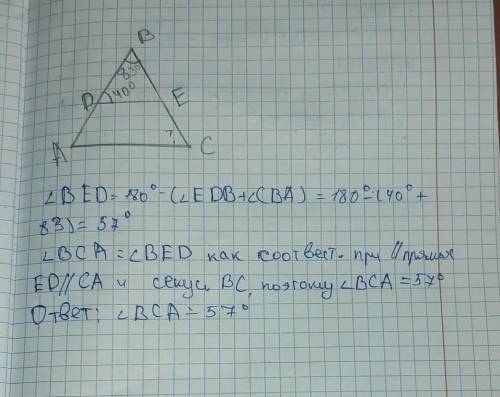 B
83°
D 40° E
?
A C
∠BED = 180° - (∠EDB + ∠CBA) = 180° - (40° +
83) = 57°
∠BCA = ∠BED как соответ. при // прямых
ED // CA и секущ. BC, поэтому ∠BCA = 57°
Ответ: ∠BCA = 57°